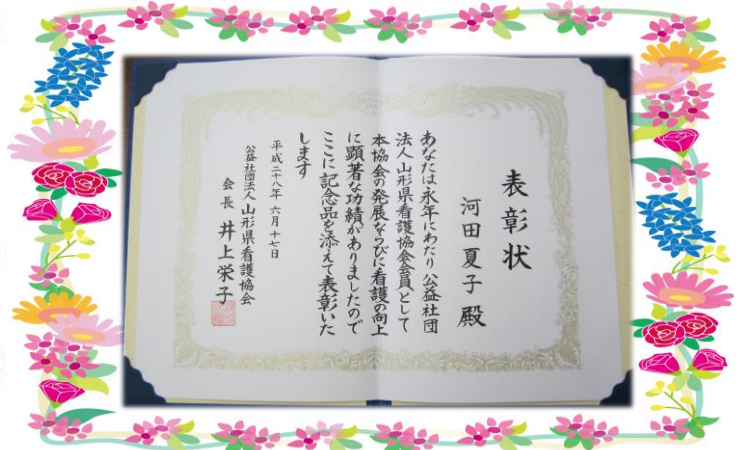 表彰状
河田夏子 殿
あなたは永年にわたり公益社団
法人山形県看護協会会員として
本協会の発展ならびに看護の向上
に顕著な功績がありましたので
ここに記念品を添えて表彰いた
します
平成二十八年 六月十七日
公益社団法人 山形県看護協会
会長 井上栄子